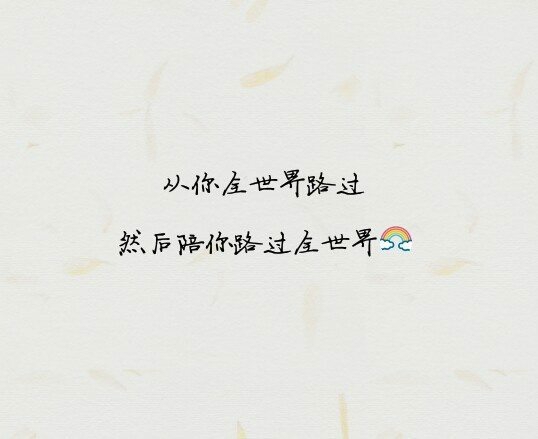 从你全世界路过
然后陪你路过全世界🌈